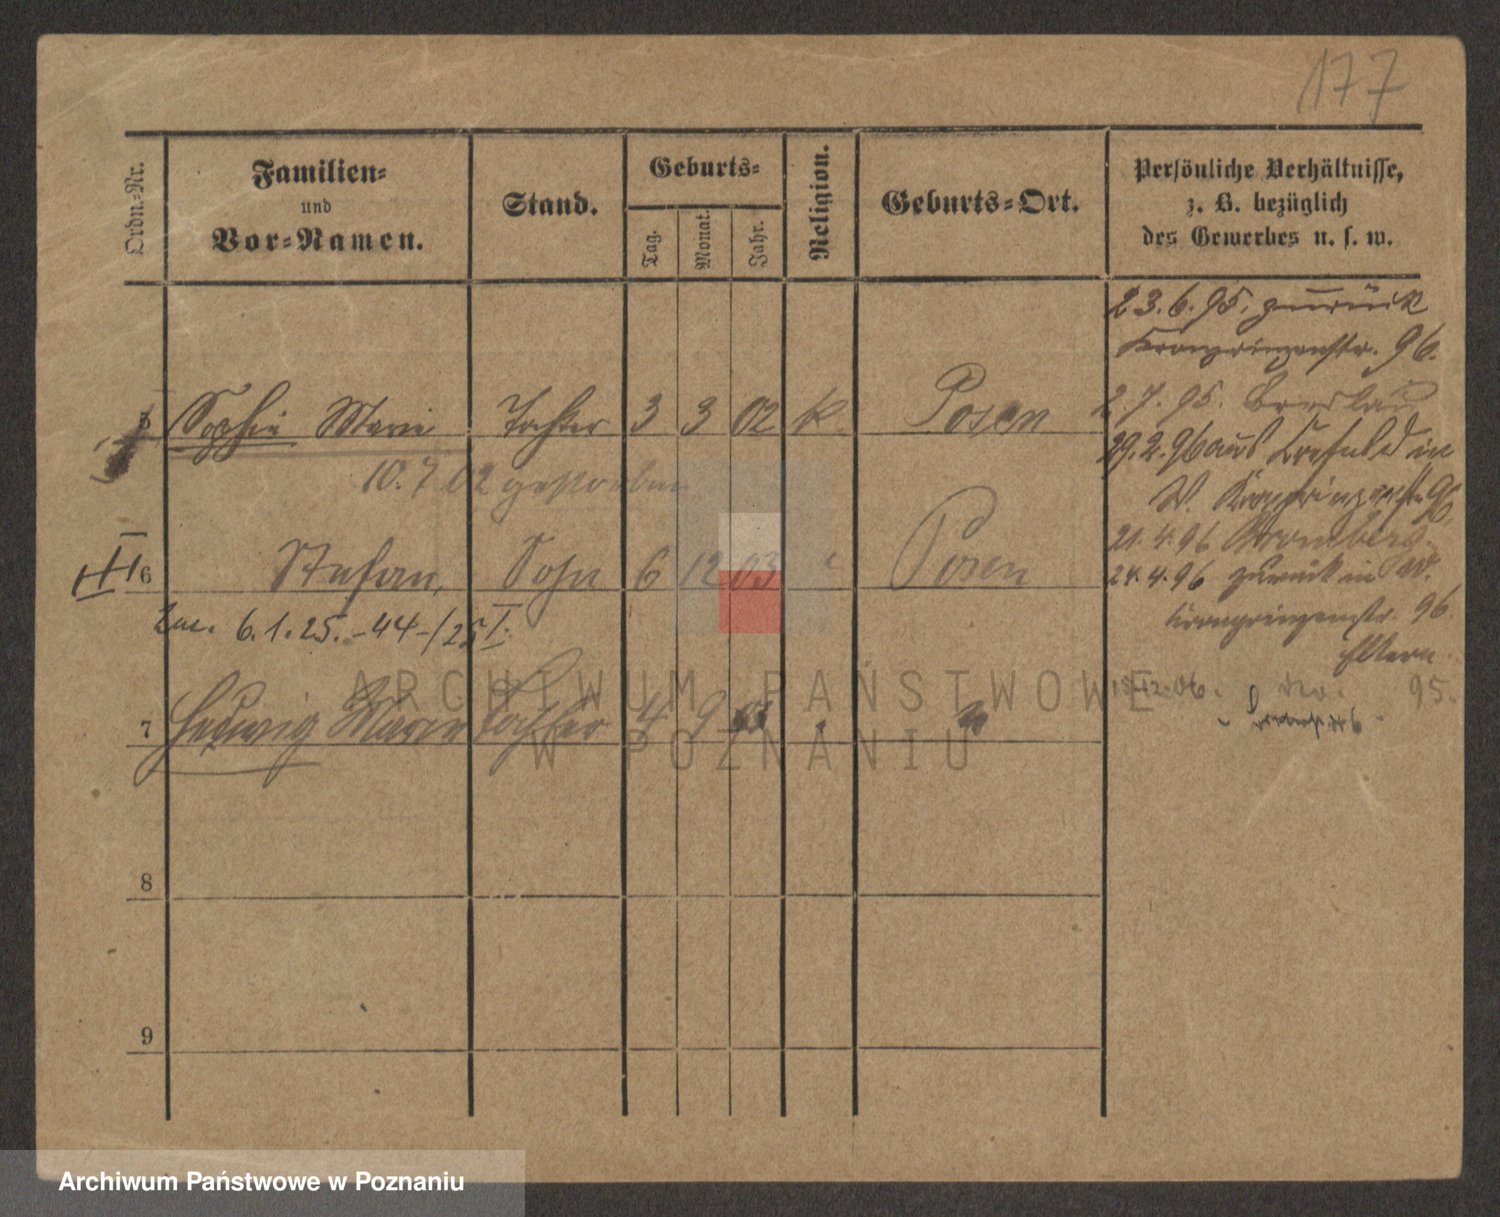 177
Ordn.-Nr.
Familien-
und
Vor-Namen.
Stand.
Geburts-
Tag.
Monat.
Jahr.
Religion.
Geburts-Ort.
Persönliche Verhältnisse,
z. B. bezüglich
des Gewerbes u. s. w.
23. 6. 95. zurück
Kronprinzenstr. 96.
2. 7. 95. Breslau
29. 2. 96 aus Krefeld in
W. Kronprinzenstr. 96.
21. 4. 96 Bromberg.
24. 4. 96 zurück in W.
Kronprinzenstr. 96.
Eltern
12. 06. 95.
5 Sophie Marie Tochter 3 3 02 k. Posen
10. 7 02 gestorben
III 6 Stefan, Sohn 6 12 03 " Posen
6. 1. 25. -44-/25 I.
7 Hedwig Maria Tochter 4 9 "
8
9
ARCHIWUM PAŃSTWOWE
W POZNANIU
Archiwum Państwowe w Poznaniu